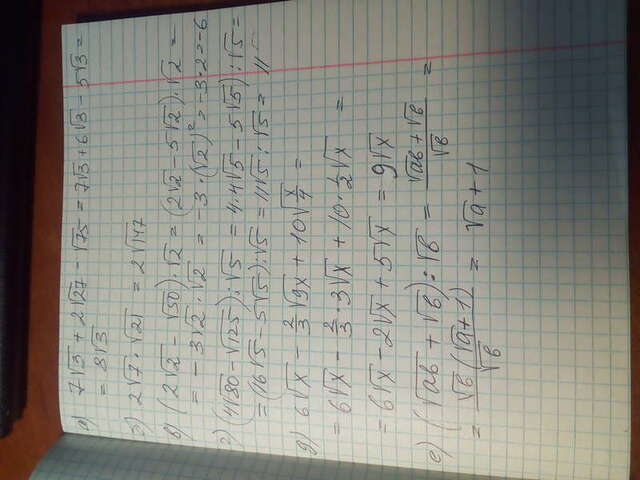 а) 7√3 + 2√27 - √75 = 7√3 + 6√3 - 5√3 =
= 8√3
б) 2√7 · √21 = 2√147
в) (2√2 - √50) · √2 = (2√2 - 5√2) · √2 =
= - 3√2 · √2 = -3 · (√2)² = -3 · 2 = -6
г) (4√80 - √125) : √5 = 4·4√5 - 5√5) : √5 =
= (16√5 - 5√5) : √5 = 11√5 : √5 = 11
д) 6√x - 2/3 √9x + 10√x/4 =
= 6√x - 2/3 · 3√x + 10 · 1/2 √x =
= 6√x - 2√x + 5√x = 9√x
е) (√ab + √b) : √b = (√ab + √b)/√b =
= √b(√a + 1)/√b = √a + 1